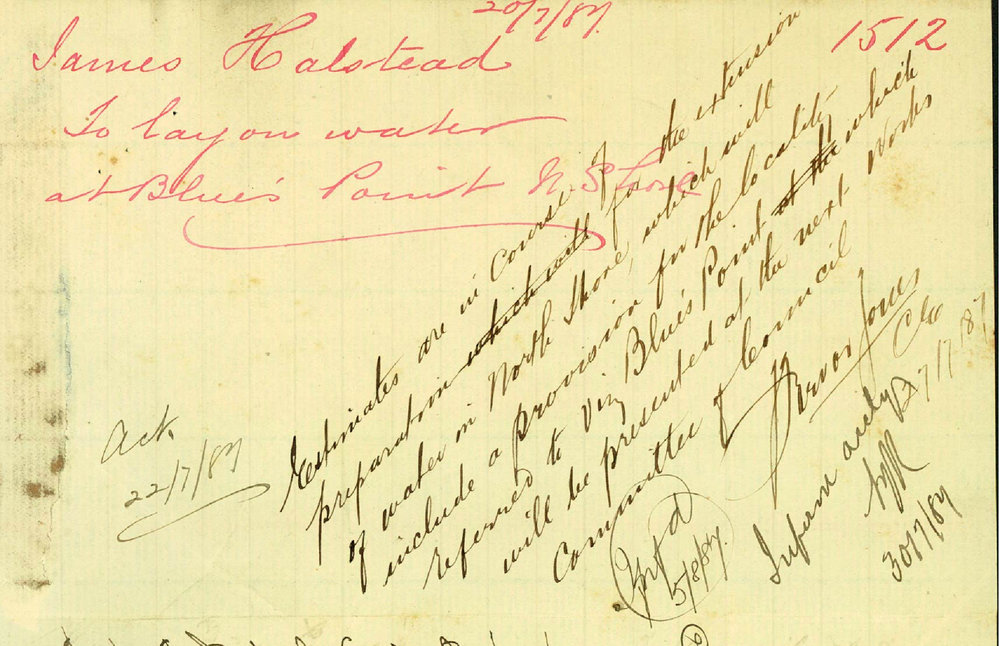 20/7/87.
1512
James Halstead
To lay on water
at Blue's Point N. Shore
Estimates are in course of
preparation which will for the extension
of water in North Shore, which will
include a provision for the locality
referred to viz Blue's Point at the which
will be presented at the next Works
Committee of Council
Trevor Jones
C/E
7/7/87
Inform
30/7/87
Ack.
22/7/87
5/8/87.